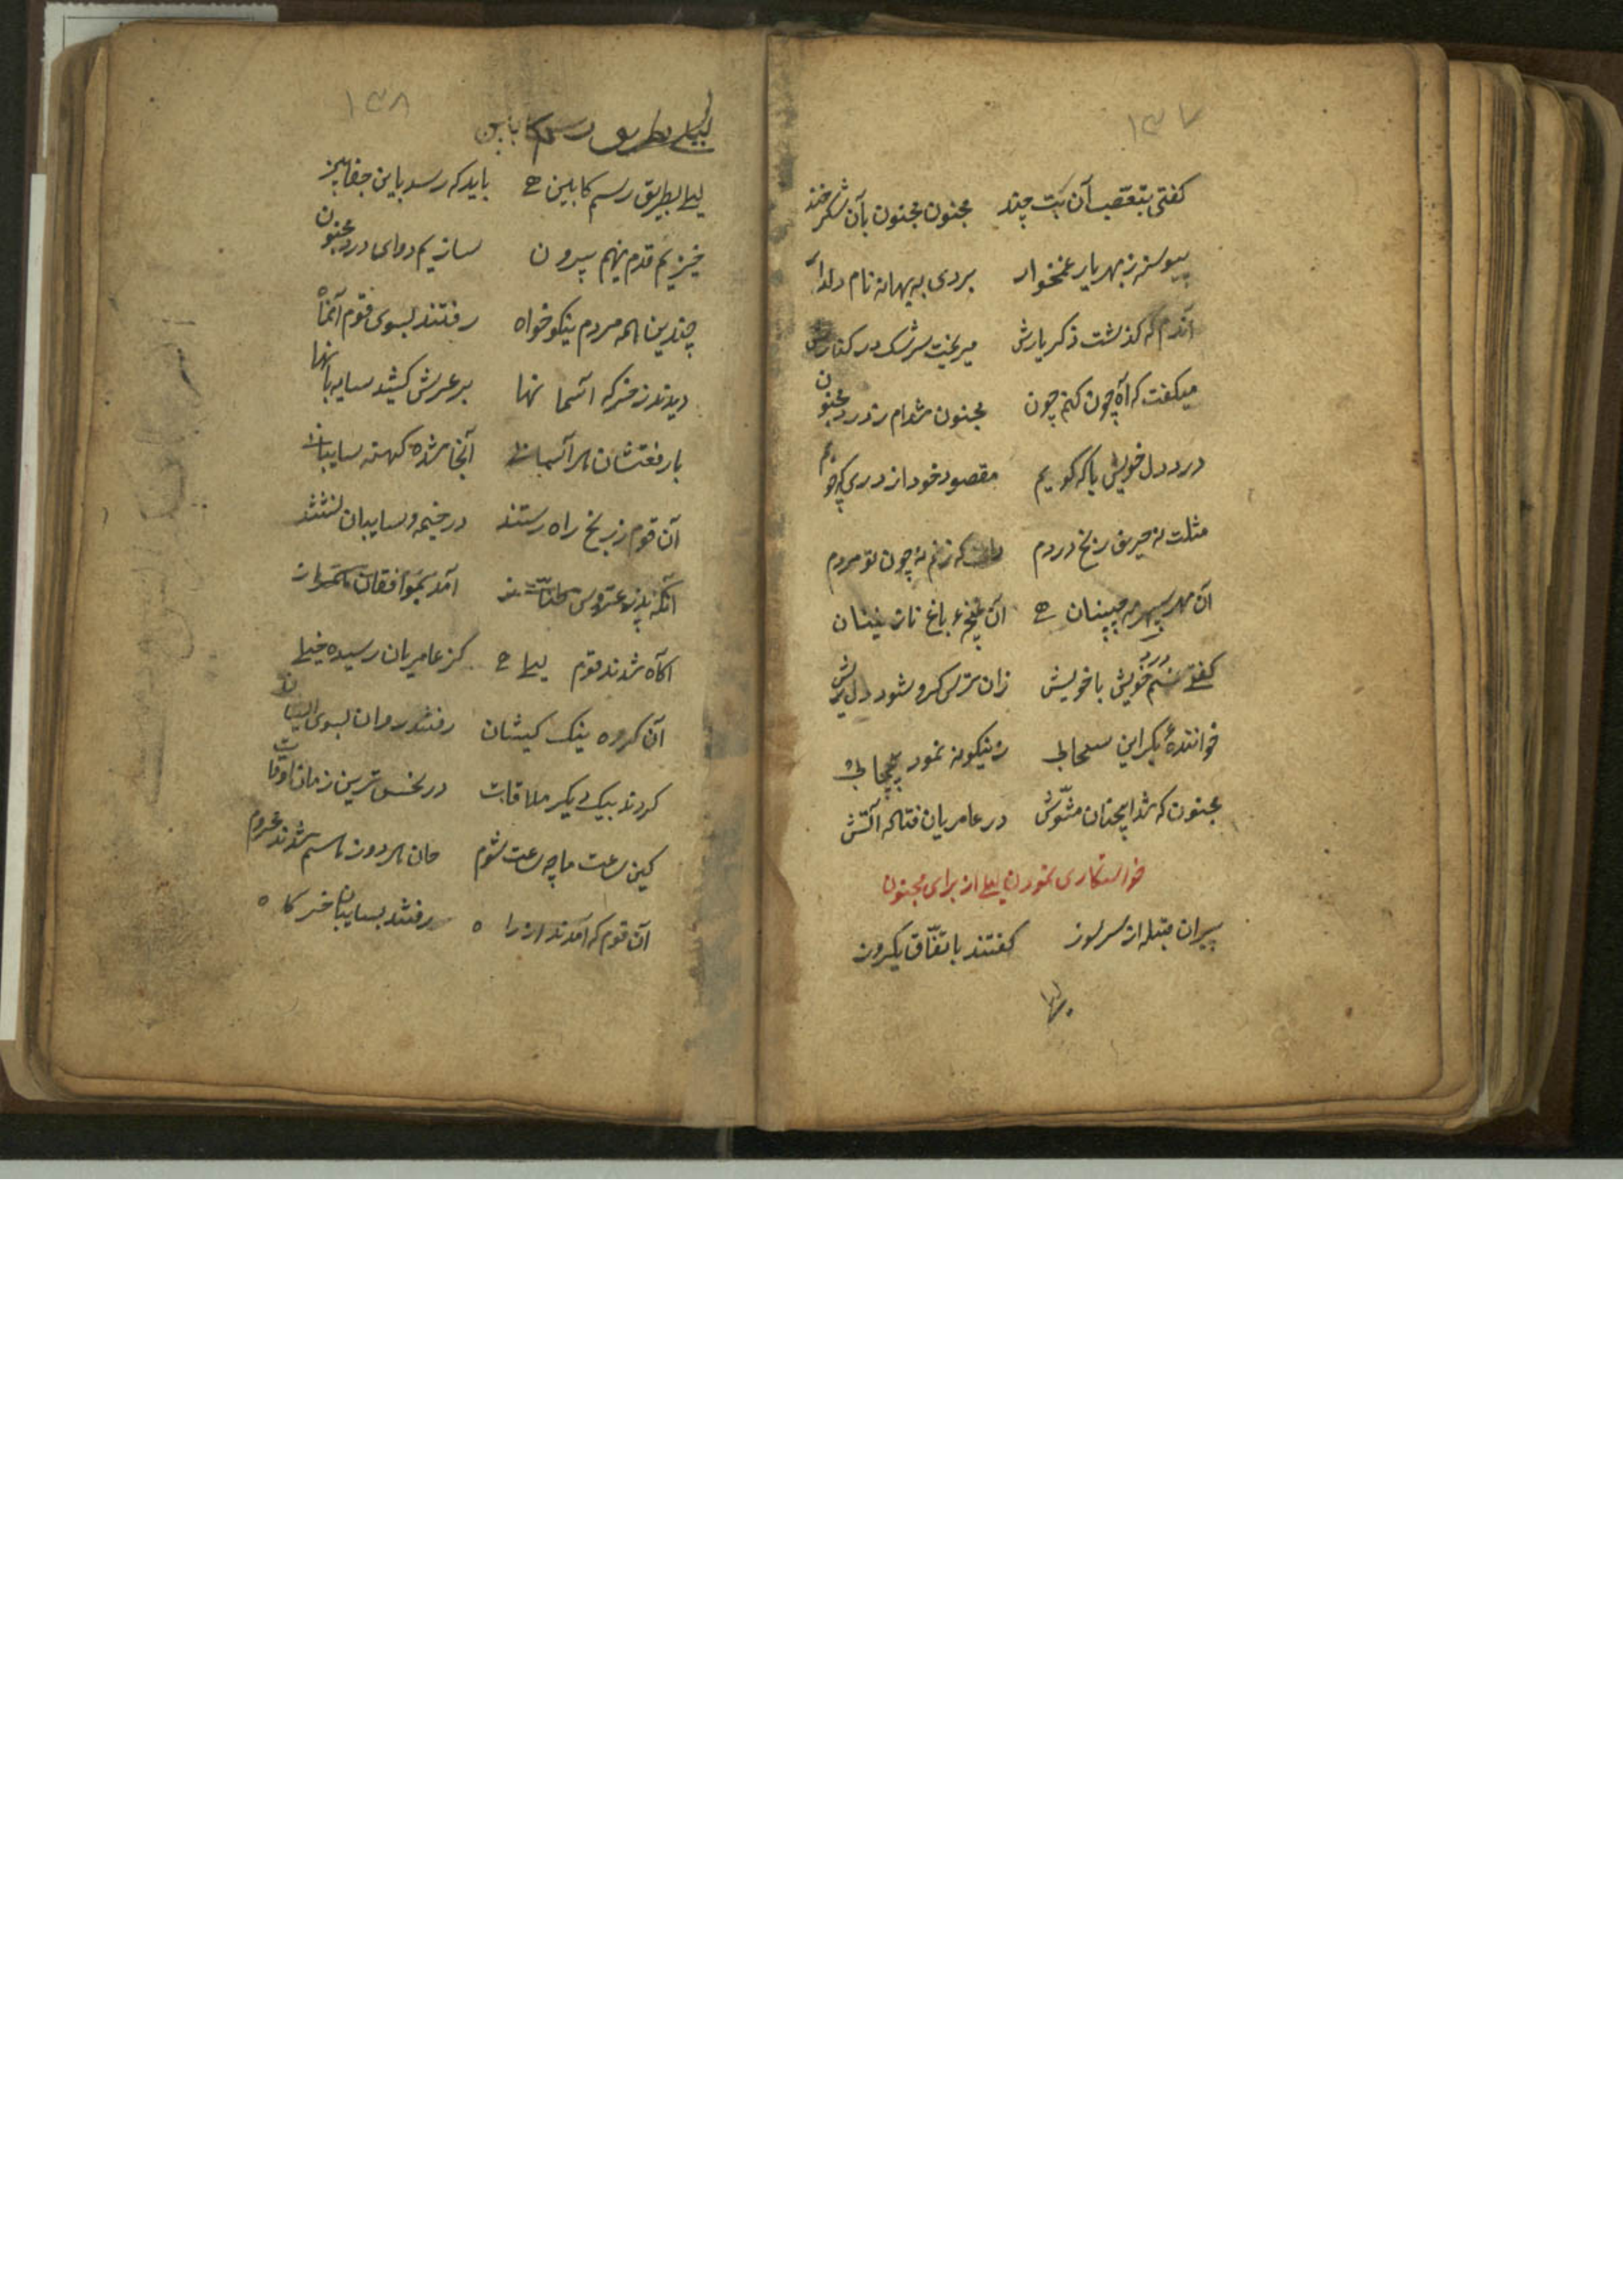 ۱۳۷
کفتی بتعصب آن بت چند مجنون مجنون بآن شکرخند
پیوسته ز مهر یار غمخوار بردی به بهانه نام دلدار
آندم که کذشت ذکر یارش میریخت سرشک در کنارش
میکفت که آه چون کنم چون مجنون شدام ز درد مجنون
درد دل خویش با که کویم مقصود خود از در که جویم
مثلت نه حریف رنج دردم که زنم نه چون تو مردم
آن مهر سپهر مه جبینان آن غنچهء باغ نازنینان
کفتی غم خویش با خویش زان ترس که رو شود دل ریش
خوانندهٔ بکر این زینکونه نمود
مجنون که شد آنچنان مشوش در عامریان فتاد آتش
خواستکاری نمودن لیلی از برای مجنون
پیران قبیله از سر سوز کفتند باتفاق یکروز
لیلی
۱۳۸
لیلی بطریق رسم کابین
لیلی بطریق رسم کابین باید که رسد باین
خیزیم قدم نهیم بیرون سازیم دوای درد مجنون
چندین همه مردم نیکوخواه رفتند بسوی قوم آنماه
دیدند ز خرکه آسمانها بر عرش کشید سایبانها
با رفعتشان هر آسمان آنجا شده کهنه سایبان
آن قوم ز رنج راه رستند در خیمه و سایبان نشستند
آنکه پدر عروس آمد بموافقان
آکاه شدند قوم لیلی کز عامریان رسیده خیلی
آن کروه نیک کیشان رفتند روان بسوی ایشان
کردند بیک دیکر ملاقات در نحس ترین زمان اوقات
کین ساعت ما چه ساعت شوم هر دوز شدند محروم
آن قوم که آمدند از راه رفتند بسایبان خرکاه